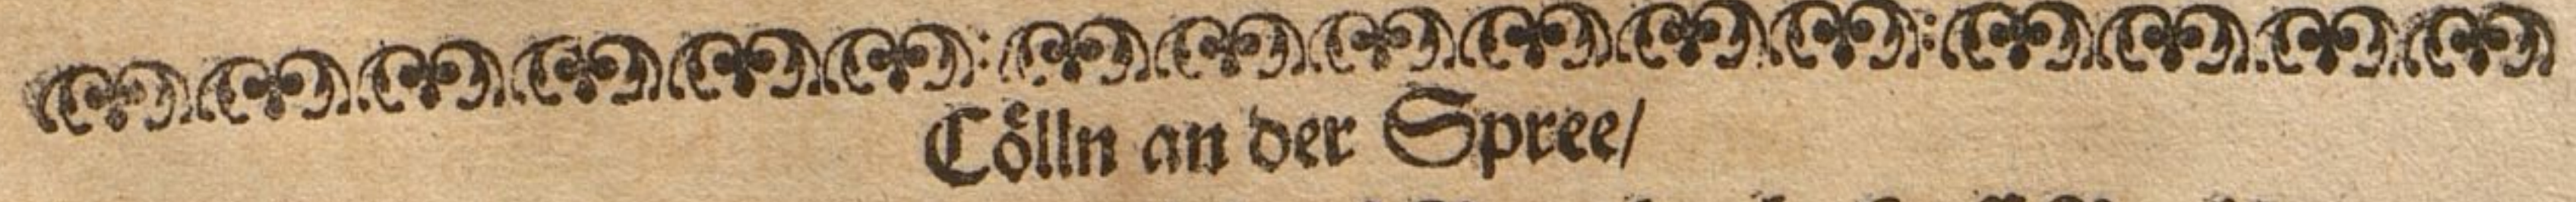 Cölln an der Spree/